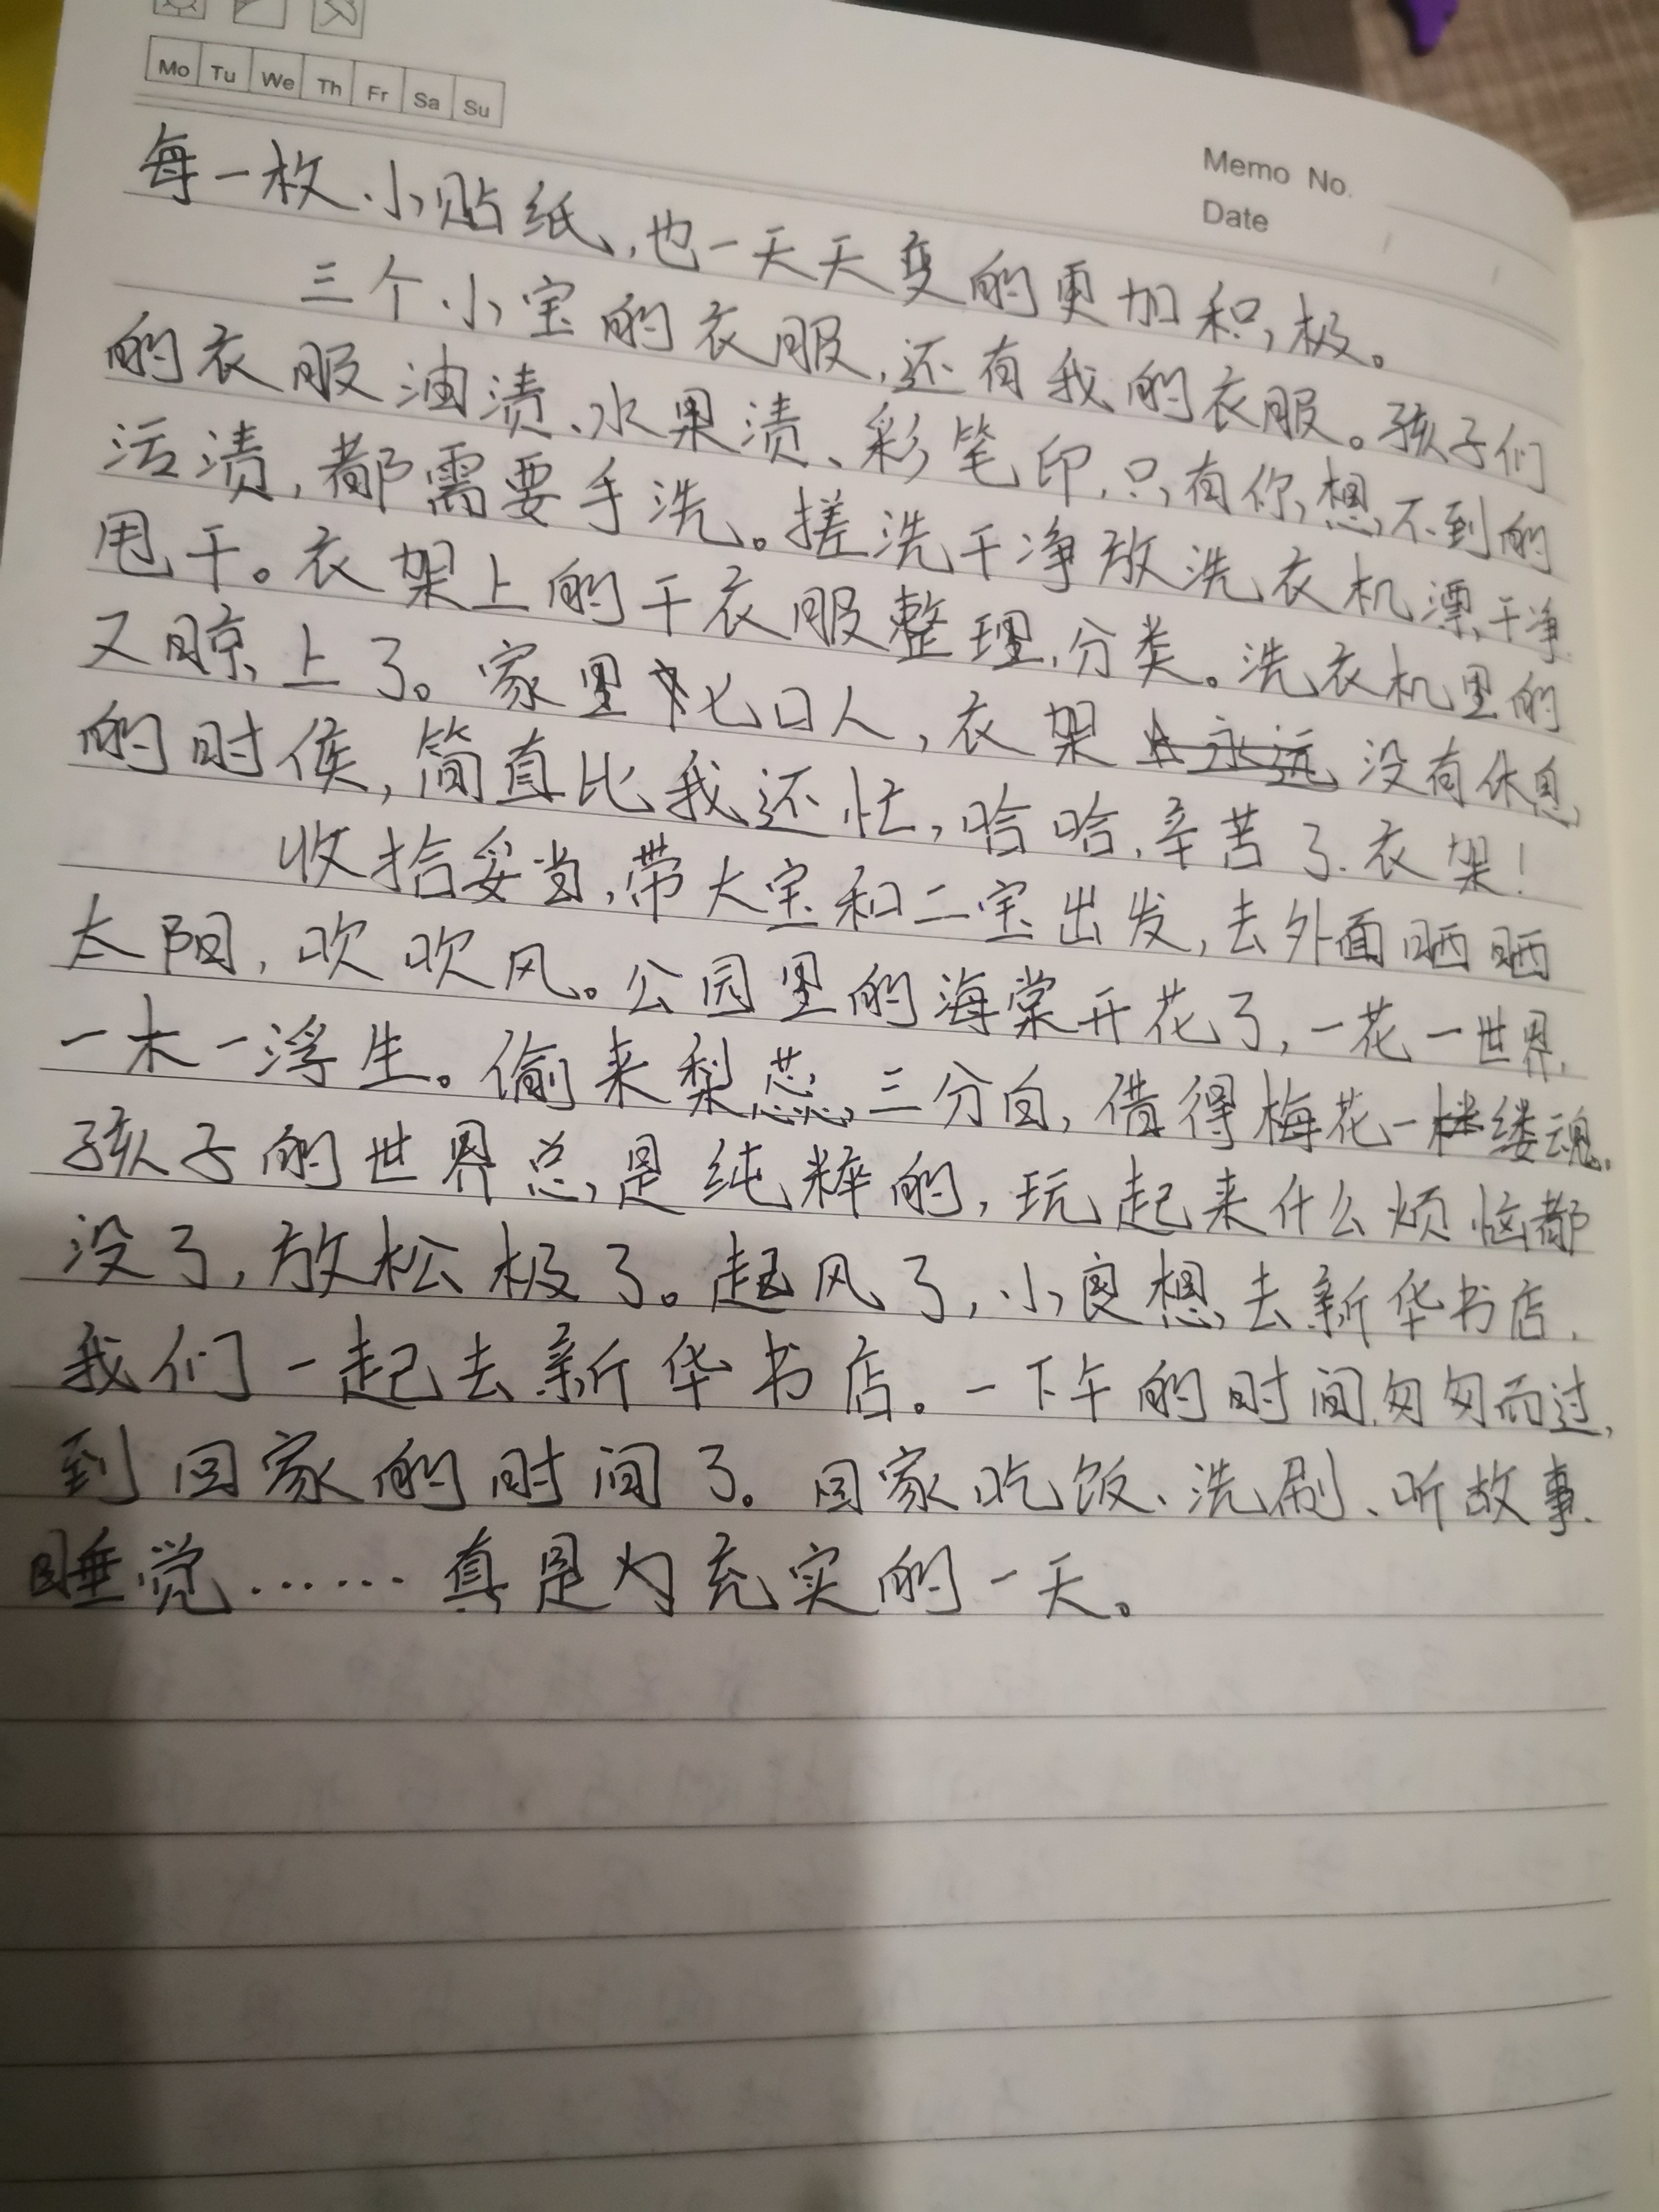 Mo Tu We Th Fr Sa Su
Memo No.
Date
每一枚小贴纸,也一天天变的更加积极。
三个小宝的衣服,还有我的衣服。孩子们
的衣服油渍、水果渍、彩笔印,只有你想不到的
污渍,都需要手洗。搓洗干净放洗衣机漂干净
甩干。衣架上的干衣服整理,分类。洗衣机里的
又晾上了。家里七口人,衣架永远没有休息
的时侯,简直比我还忙,哈哈,辛苦了,衣架!
收拾妥当,带大宝和二宝出发,去外面晒晒
太阳,吹吹风。公园里的海棠开花了,一花一世界,
一木一浮生。偷来梨蕊三分白,借得梅花一缕魂。
孩子的世界总是纯粹的,玩起来什么烦恼都
没了,放松极了。起风了,小良想去新华书店,
我们一起去新华书店。一下午的时间匆匆而过,
到回家的时间了。回家吃饭、洗刷、听故事、
睡觉……真是为充实的一天。